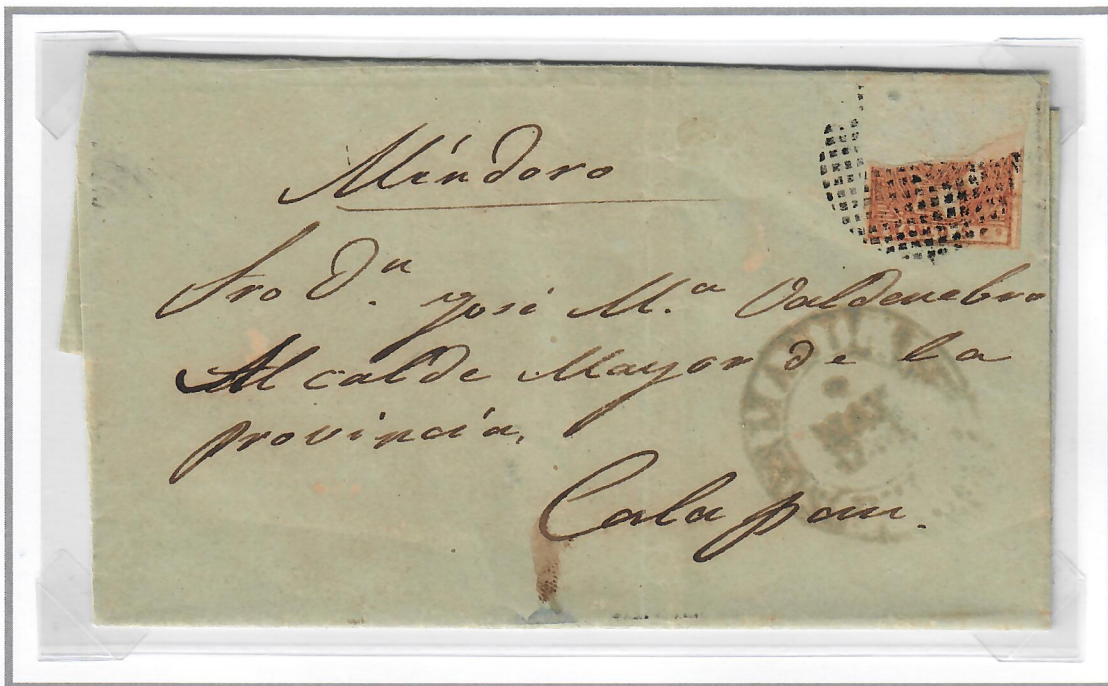 Mindoro
Sro Dⁿ. José M.ª Valdenebro
Alcalde Mayor de la
provincia,
Calapan.
MANILA